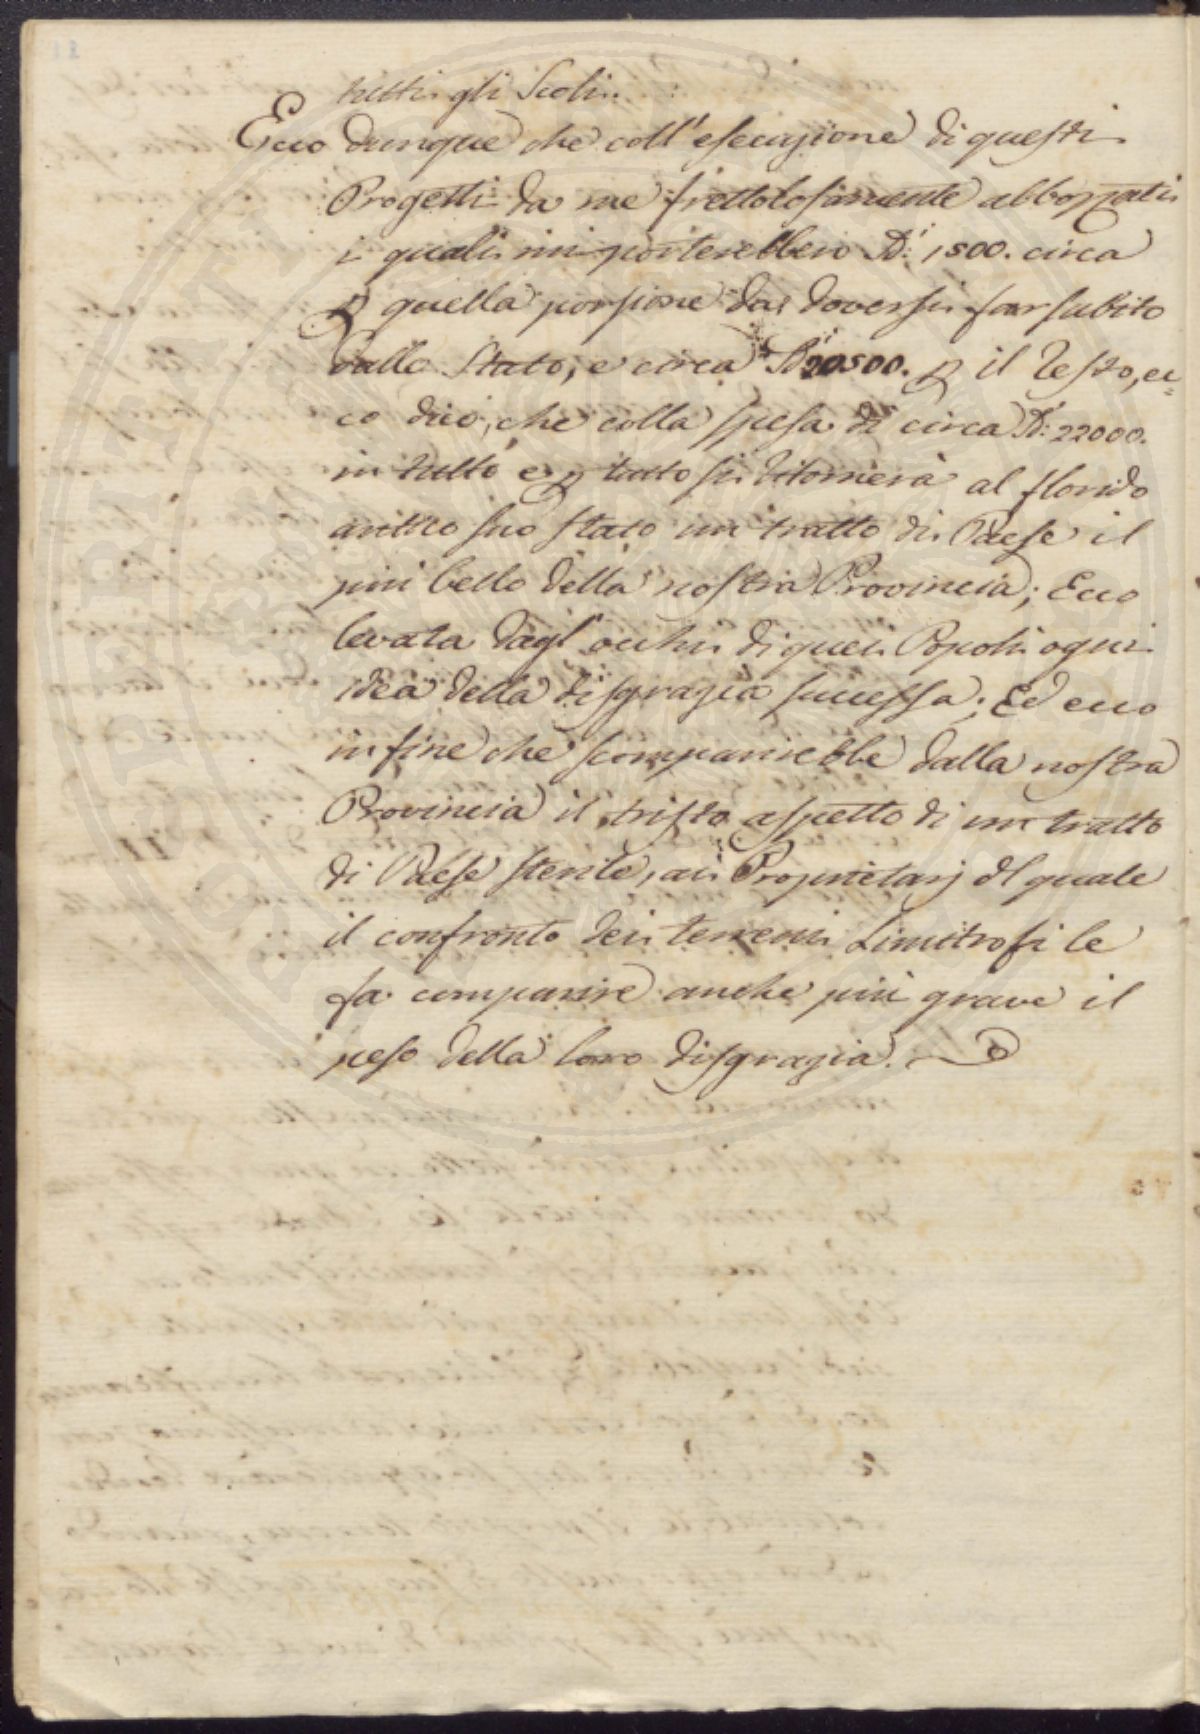 tutti gli Scoli.
Ecco dunque che coll'esecuzione di questi
Progetti da me frettolosamente abbozzati
i quali importerebbero D.i 1500. circa
p quella porzione da doversi far subito
dallo Stato, e circa D.i 20500. p il resto, ec=
co dico, che colla spesa di circa D.i 22000.
in tutto e p tutto si ritornerà al florido
antico suo stato un tratto di Paese il
più bello della nostra Provincia; Ecco
levata dagl'occhi di quei Popoli ogni
idea della disgrazia successa; Ed ecco
infine che scomparirebbe dalla nostra
Provincia il tristo aspetto di un tratto
di Paese sterile, ai Proprietarj del quale
il confronto dei terreni Limitrofi le
fa comparire anche più grave il
peso della loro disgrazia.